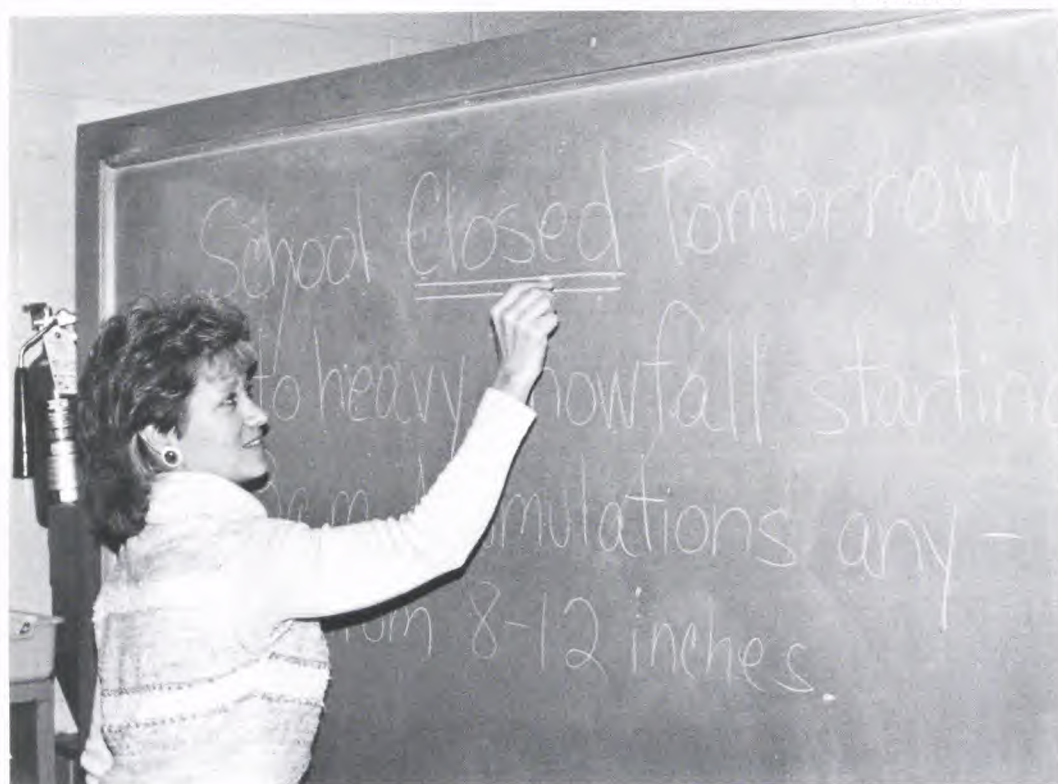 School Closed Tomorrow
to heavy snowfall starting
any-
8-12 inches.